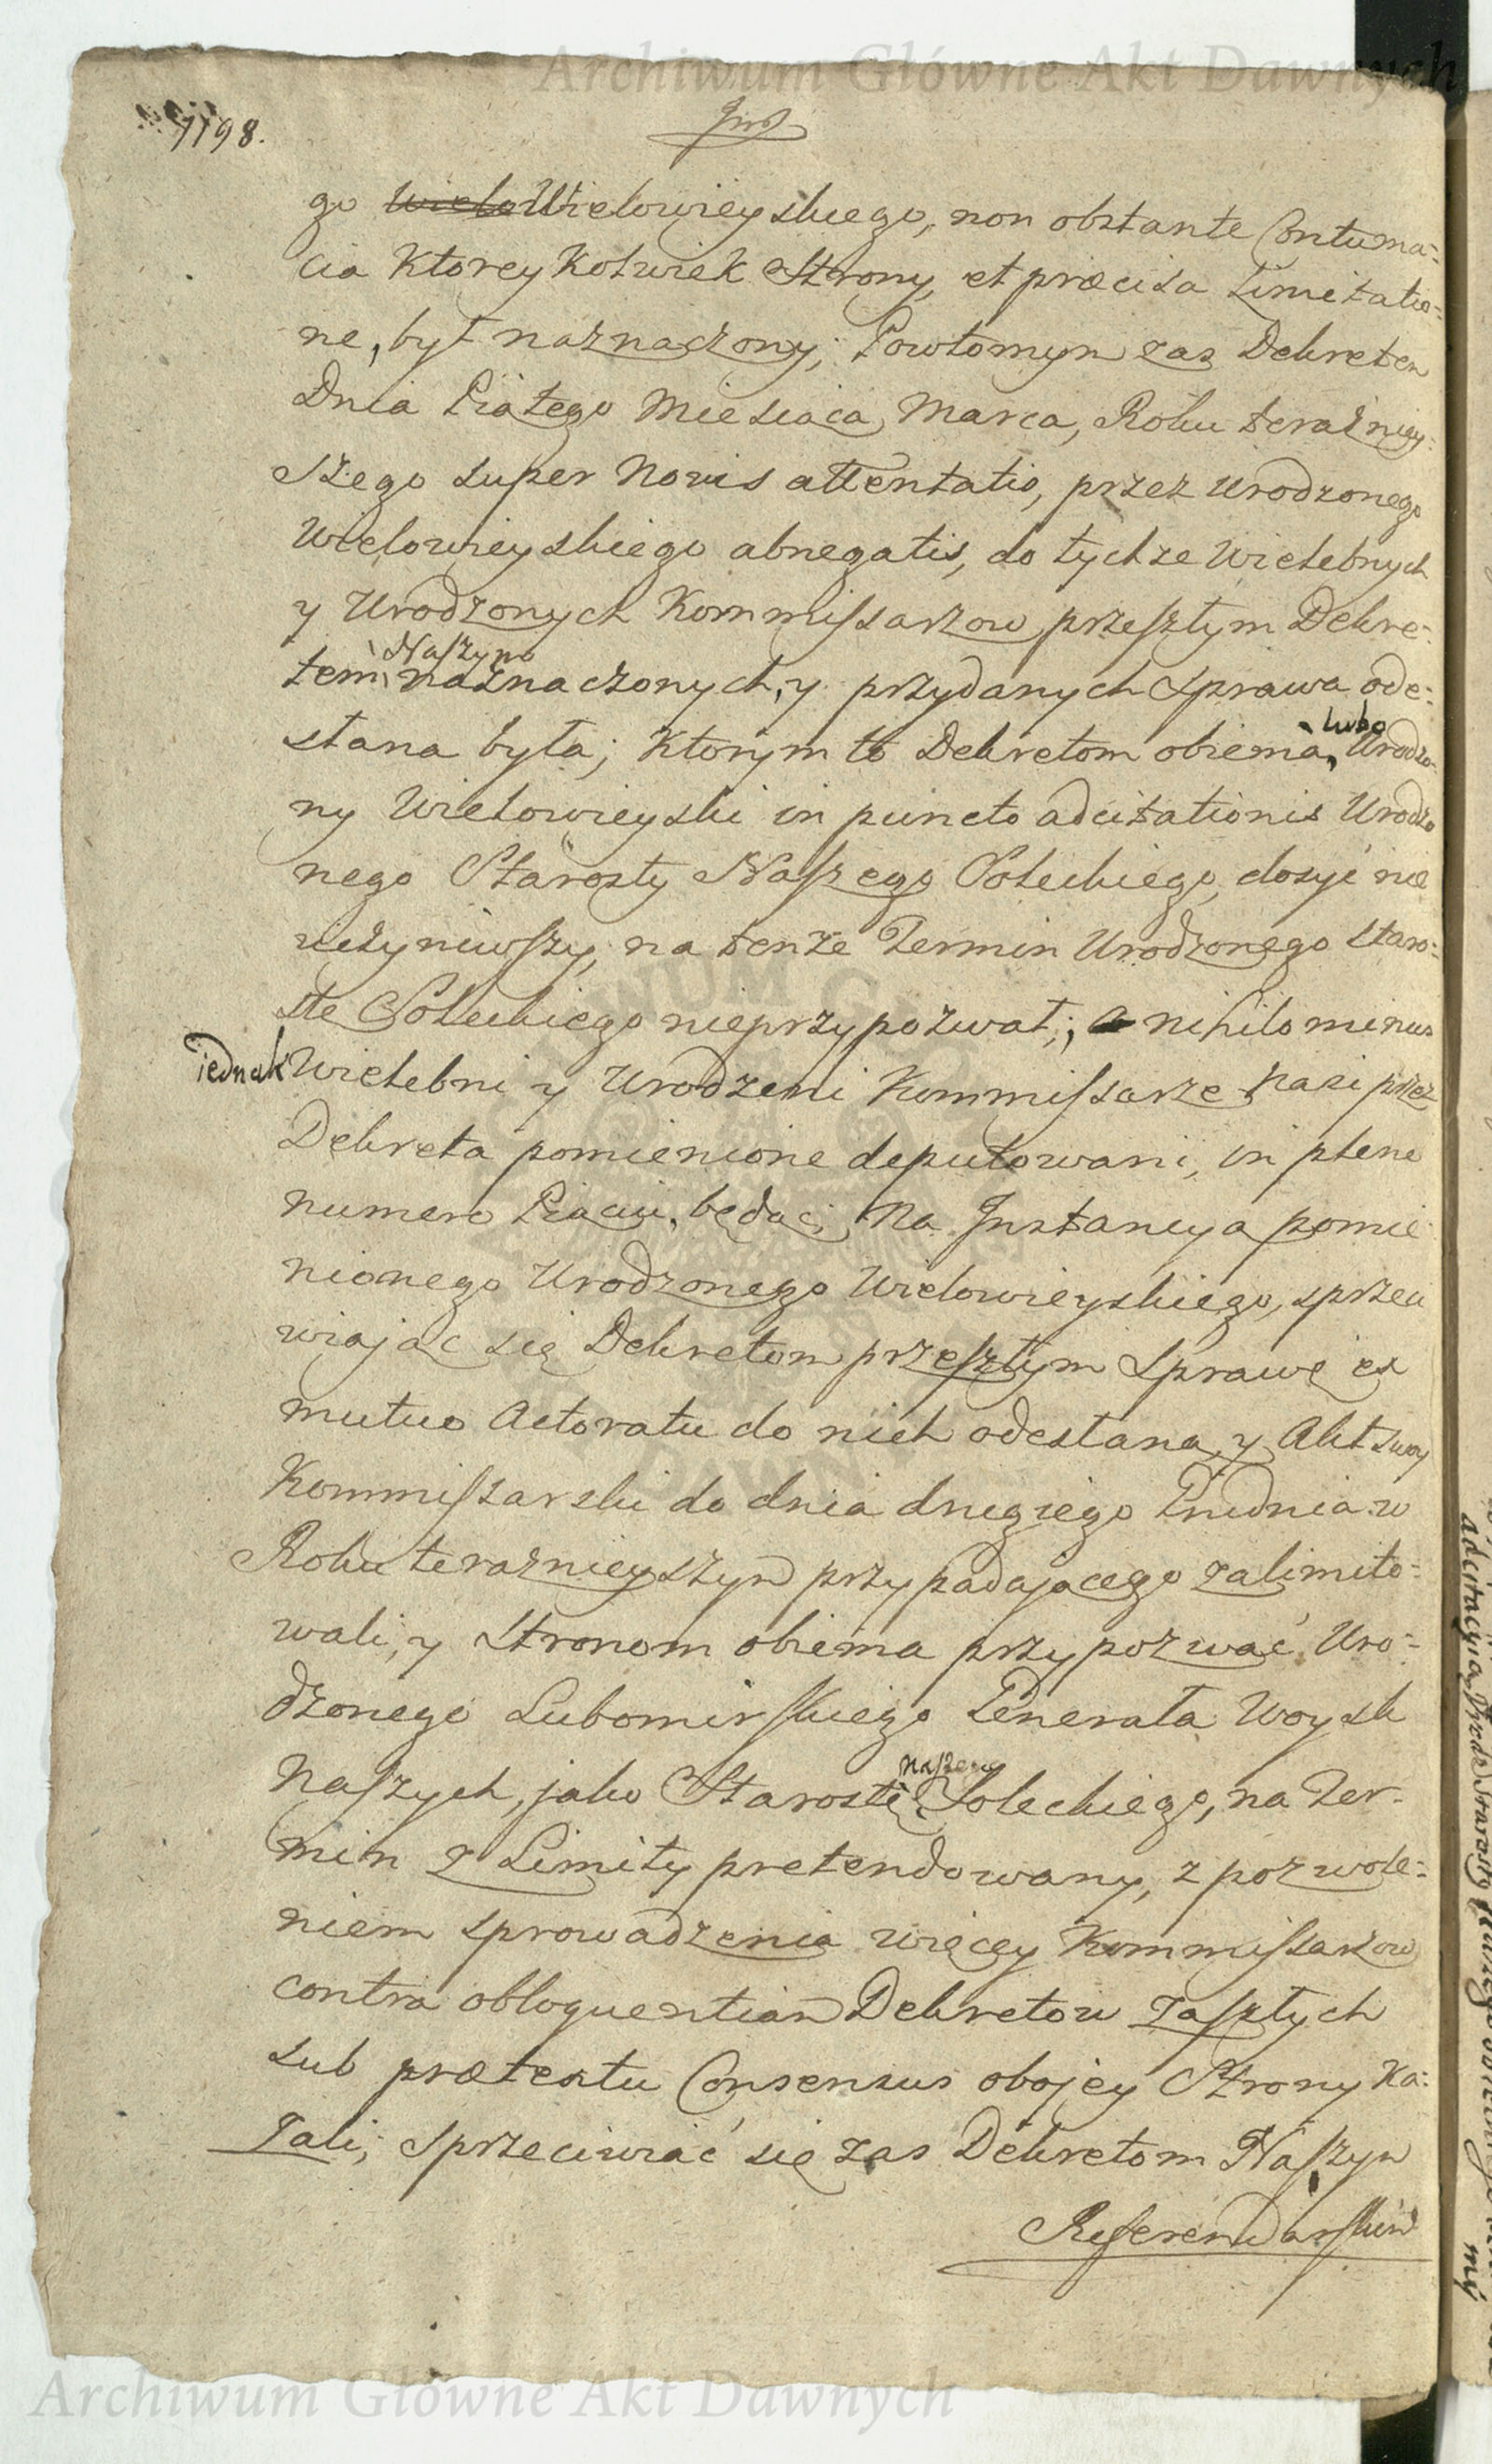 Archiwum Główne Akt Dawnych
1198.
go Wielo Wielowieyskiego, non obstante Contuma=
cia ktorey kolwiek Strony, et præcisa Limitatio=
ne, był naznaczony; Powtornym zas Dekretem
Dnia Piątego Miesiąca Marca, Roku teraźniey=
szego super Novis attentatis, przez Urodzonego
Wielowieyskiego abnegatis, do tychze Wielebnych
y Urodzonych Kommissarzow przeszłym Dekre=
tem Naszym naznaczonych, y przydanych Sprawa ode=
słana była; ktorym to Dekretom obiema, lubo Urodzo=
ny Wielowieyski in puncto adcitationis Urodzo
nego Starosty Naszego Soleckiego, dosyć nie
uczyniwszy, na tenże Termin Urodzonego Staro=
stę Soleckiego nieprzypozwał; nihilominus
jednak Wielebni y Urodzeni Kommissarze nasi przez
Dekreta pomienione deputowani, in plene
numero Piąciu będąc, Na Instancyą pomie
nionego Urodzonego Wielowieyskiego, sprzeci
wiając się Dekretom przeszłym Sprawę ex
mutuo Actoratu do nich odesłaną, y Akt swoy
Kommissarski do dnia drugiego Grudnia w
Roku teraznieyszym przypadającego zalimito=
wali, y Stronom obiema przypozwać Uro=
dzonego Lubomirskiego Generała Woysk
Naszych, jako Starostę naszego Soleckiego, na Ter=
min z Limity pretendowany, z pozwole=
niem sprowadzenia więcey Kommissarzow
contra obloquentiam Dekretow zaszłych
sub prætextu Consensus obojey Strony Ka=
zali; Sprzeciwiać się zas Dekretom Naszym
Referendarskim
Archiwum Główne Akt Dawnych